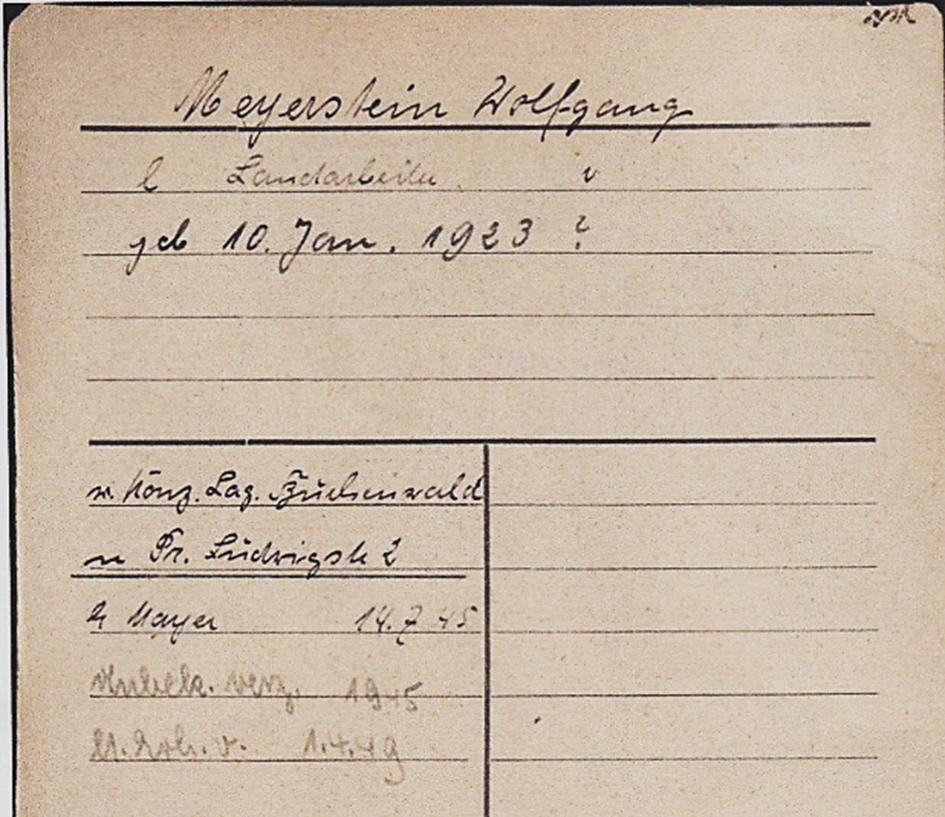 Meyerstein Wolfgang
l Landarbeiter v
geb 10. Jan. 1923 ?
v. Konz. Lag. Buchenwald
n Pr. Ludwigstr 2
b Mayer 14.7 45
Unbek. verz. 1945
1.4.49